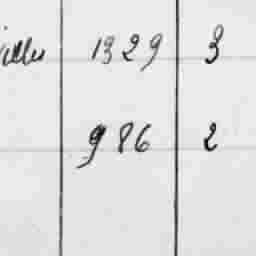 1329 3
986 2